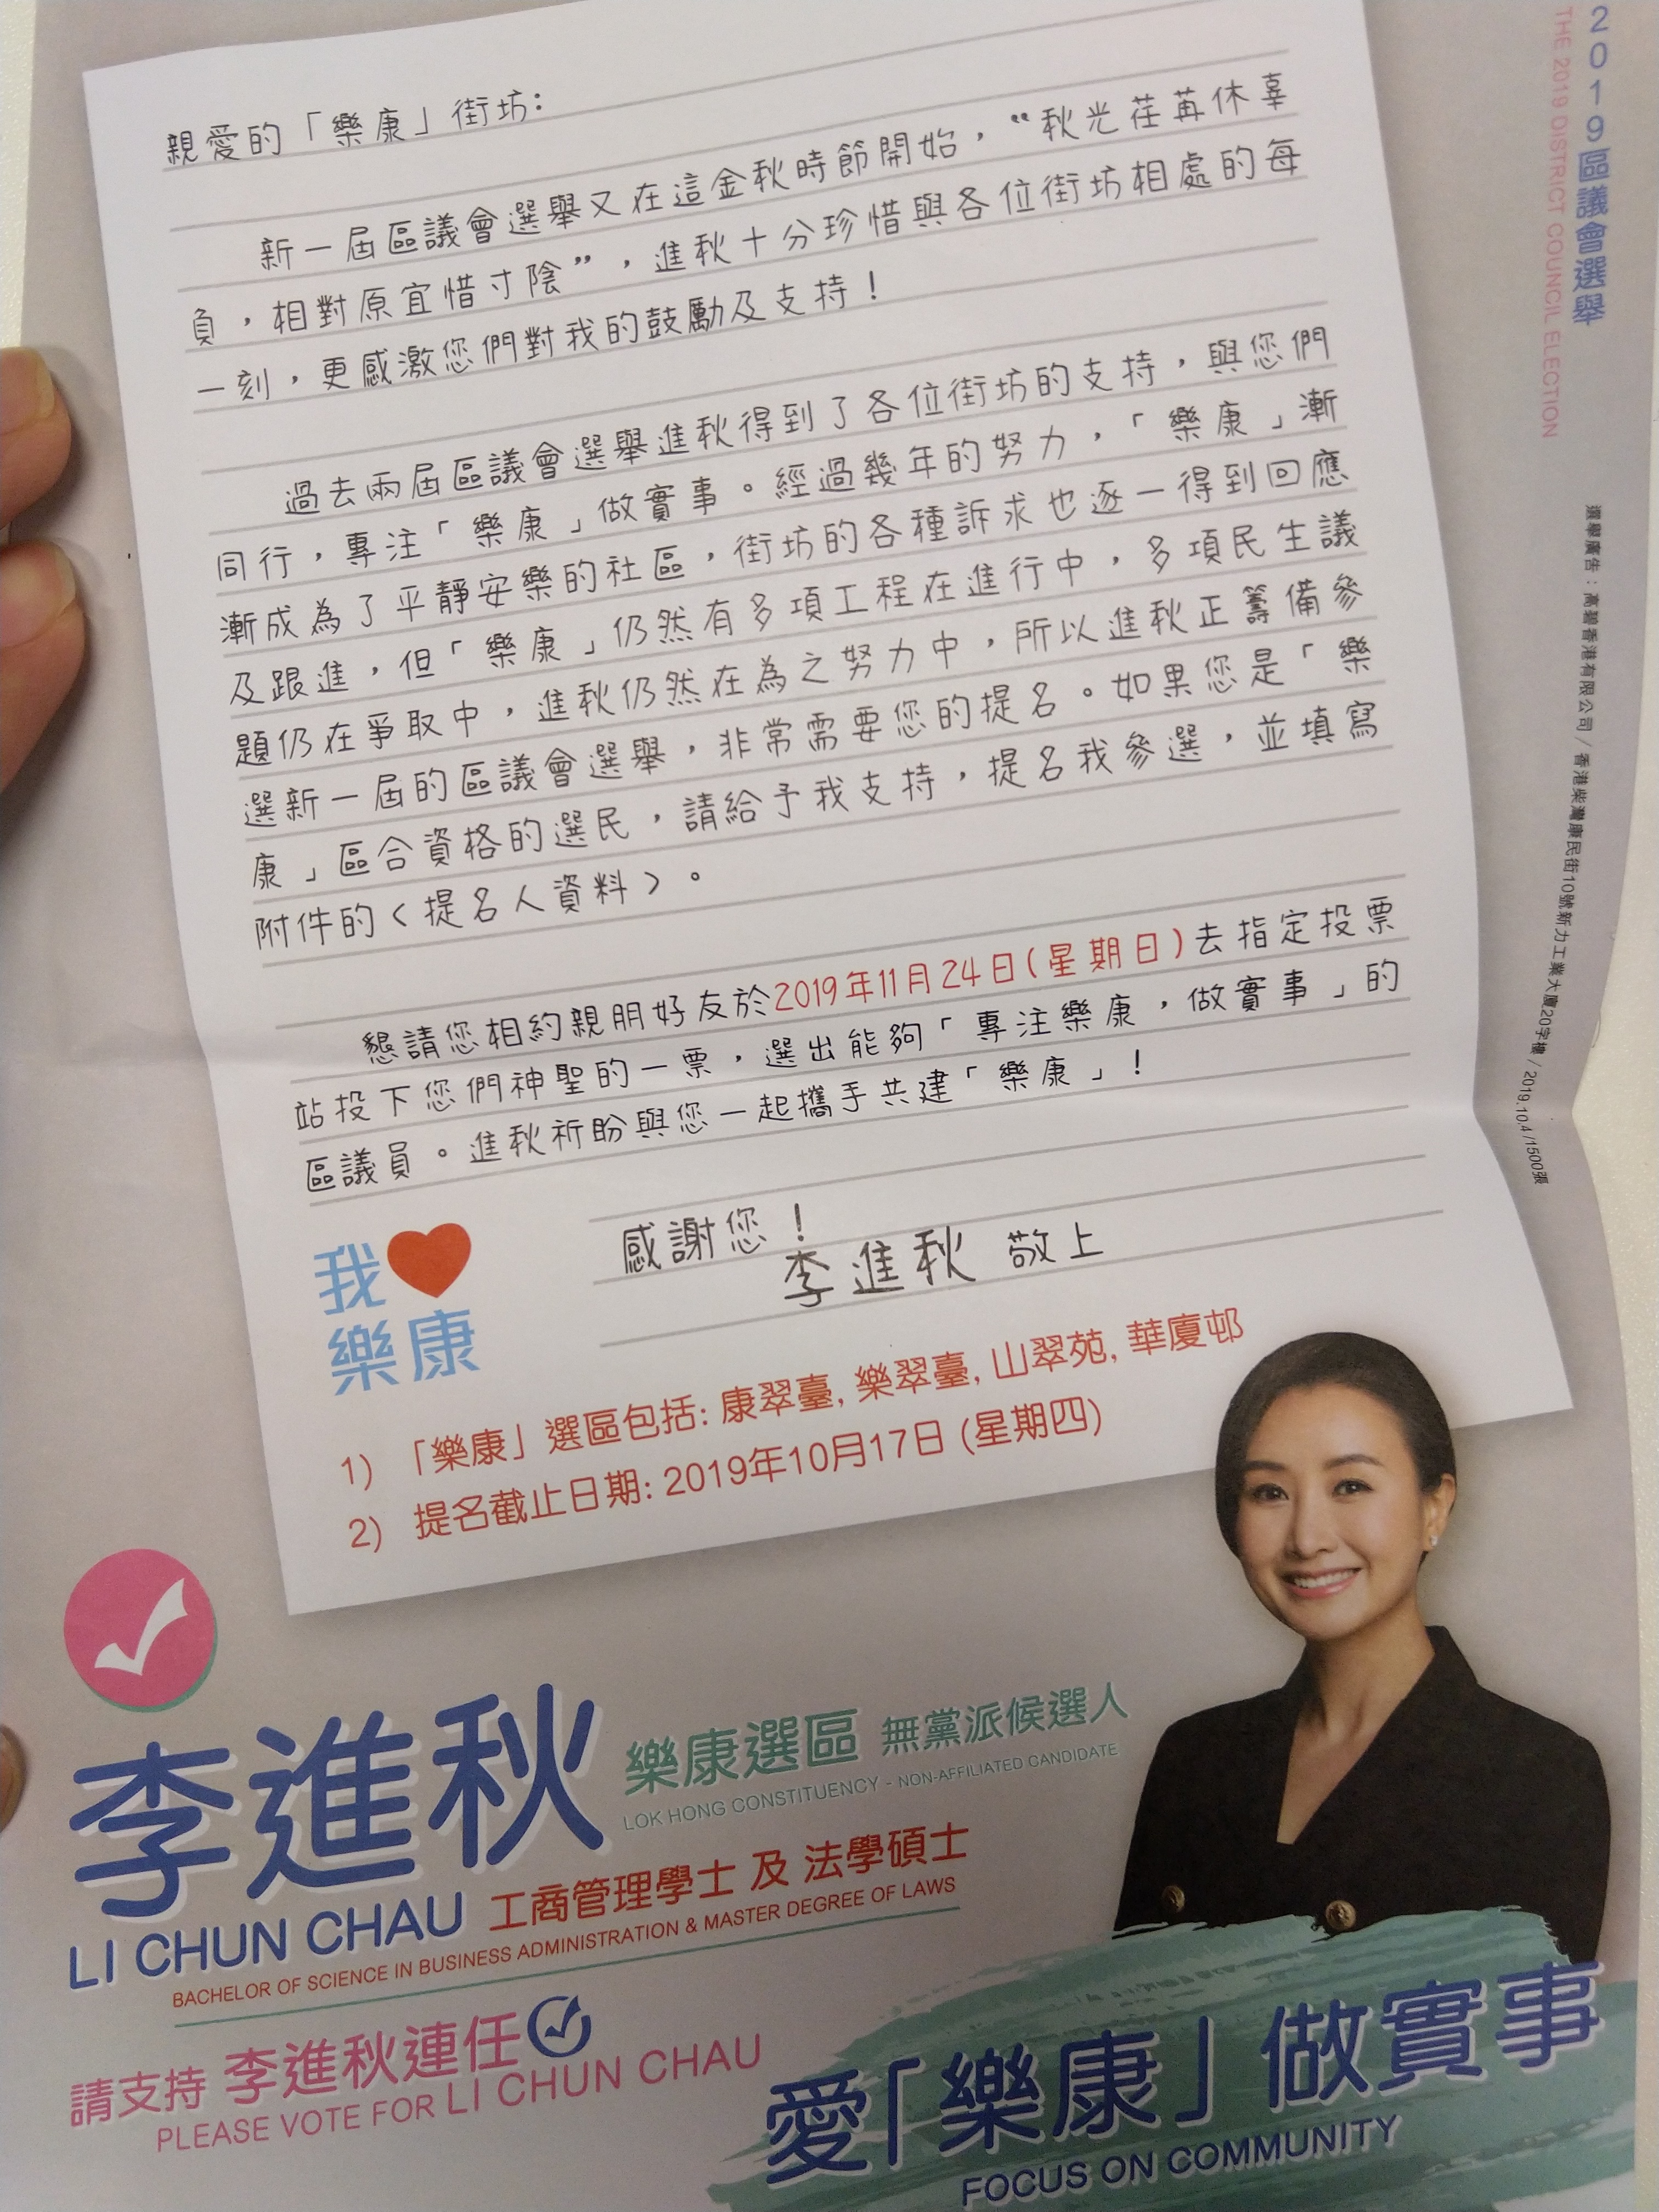 2019區議會選舉
THE 2019 DISTRICT COUNCIL ELECTION
選舉廣告：高碧香港有限公司 / 香港柴灣康民街10號新力工業大廈20字樓 / 2019.10.4 / 1500張
親愛的「樂康」街坊：
新一屆區議會選舉又在這金秋時節開始，“秋光荏苒休辜
負，相對原宜惜寸陰”，進秋十分珍惜與各位街坊相處的每
一刻，更感激您們對我的鼓勵及支持！
過去兩屆區議會選舉進秋得到了各位街坊的支持，與您們
同行，專注「樂康」做實事。經過幾年的努力，「樂康」漸
漸成為了平靜安樂的社區，街坊的各種訴求也逐一得到回應
及跟進，但「樂康」仍然有多項工程在進行中，多項民生議
題仍在爭取中，進秋仍然在為之努力中，所以進秋正籌備參
選新一屆的區議會選舉，非常需要您的提名。如果您是「樂
康」區合資格的選民，請給予我支持，提名我參選，並填寫
附件的〈提名人資料〉。
懇請您相約親朋好友於2019年11月24日(星期日)去指定投票
站投下您們神聖的一票，選出能夠「專注樂康，做實事」的
區議員。進秋祈盼與您一起攜手共建「樂康」！
感謝您！
李進秋 敬上
我
樂康
1) 「樂康」選區包括: 康翠臺, 樂翠臺, 山翠苑, 華廈邨
2) 提名截止日期: 2019年10月17日 (星期四)
李進秋
樂康選區 無黨派候選人
LOK HONG CONSTITUENCY - NON-AFFILIATED CANDIDATE
LI CHUN CHAU
工商管理學士 及 法學碩士
BACHELOR OF SCIENCE IN BUSINESS ADMINISTRATION & MASTER DEGREE OF LAWS
請支持 李進秋連任
PLEASE VOTE FOR LI CHUN CHAU
愛「樂康」做實事
FOCUS ON COMMUNITY